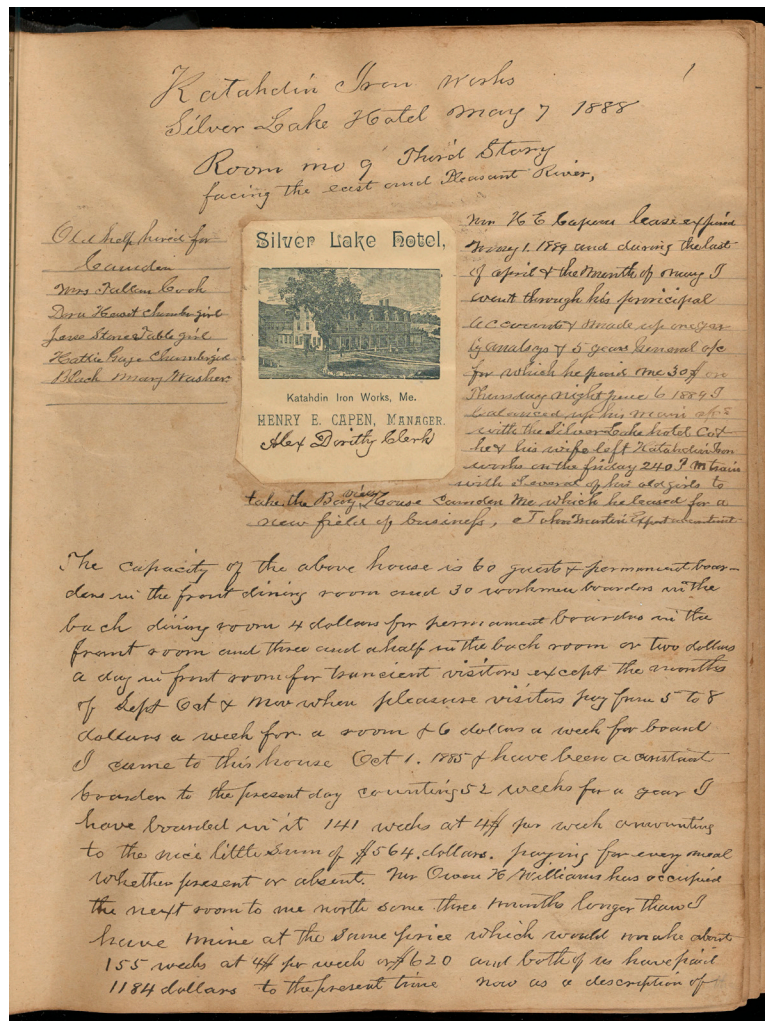 1
Katahdin Iron Works
Silver Lake Hotel May 7 1888
Room no 9 Third Story
facing the east and Pleasant River,
Old help hired for
Camden
Mrs Cook
Dora Chambergirl
Jane Stone Table girl
Hattie Gage Chambergirl
Black Mary Washer
Silver Lake Hotel,
Katahdin Iron Works, Me.
HENRY E. CAPEN, MANAGER.
Alex Dority Clerk
Mr H E Capens lease expired
May 1. 1889 and during the last
of april & the month of may I
went through his principal
accounts & made up
analsys & 5 years general a/c
for which he paid me 30$ on
Thursday night June 6 1889 I
balanced up his main
with the Silver Lake hotel Co &
he & his wife left Katahdin Iron
works on the friday 2 40 P.M train
with Several of his old girls to
take the Bay view House Camden Me which he leased for a
new field of business, John Martin Expert accountant
The capacity of the above house is 60 guests & permanent boar-
ders in the front dining room and 30 workmen boarders in the
back dining room 4 dollars for permanent boarders in the
front room and three and a half in the back room or two dollars
a day in front room for trancient visitors except the months
of Sept Oct & Nov when pleasure visitors pay from 5 to 8
dollars a week for a room & 6 dollars a week for board
I came to this house Oct 1. 1885 & have been a constant
boarder to the present day counting 52 weeks for a year I
have boarded in it 141 weeks at 4$ per week amounting
to the nice little sum of $564. dollars. paying for every meal
whether present or absent. Mr Owen H Williams has occupied
the next room to me north some three months longer than I
have mine at the same price which would make about
155 weeks at 4$ per week or $620 and both of us have paid
1184 dollars to the present time now as a description of